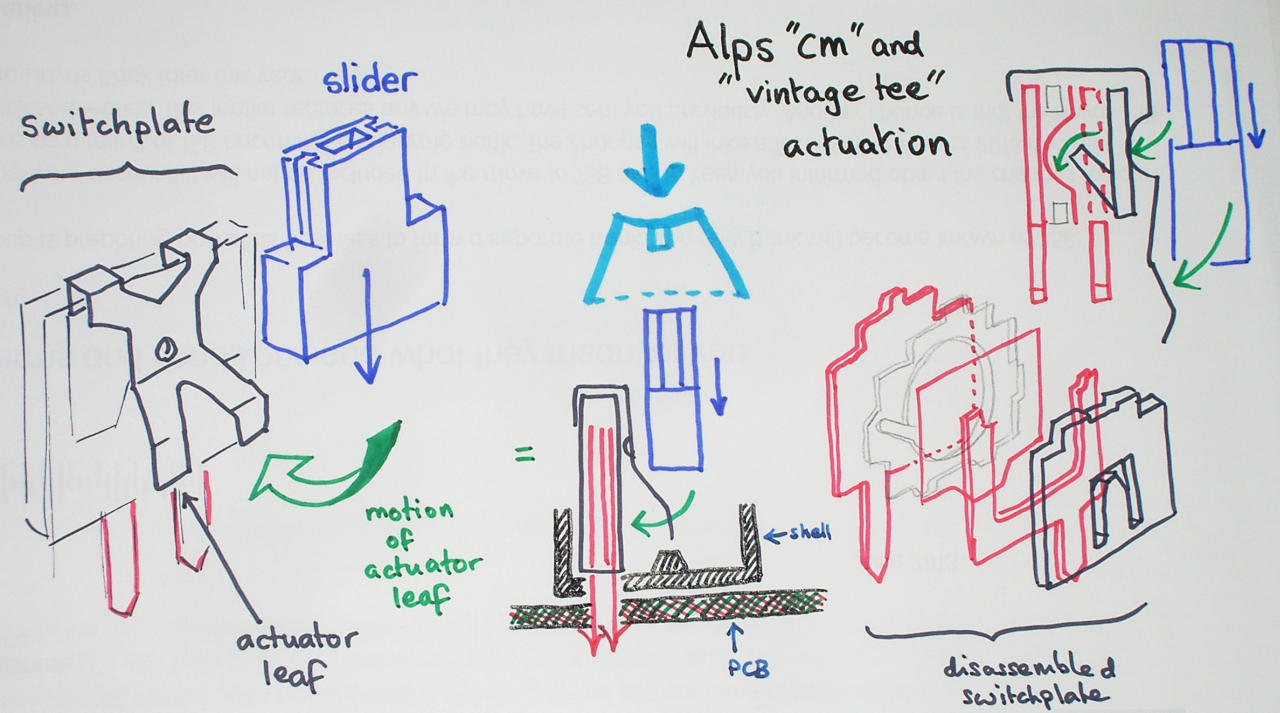 Alps "cm" and
"vintage tee"
actuation
slider
switchplate
=
motion
of
actuator
leaf
shell
PCB
actuator
leaf
disassembled
switchplate